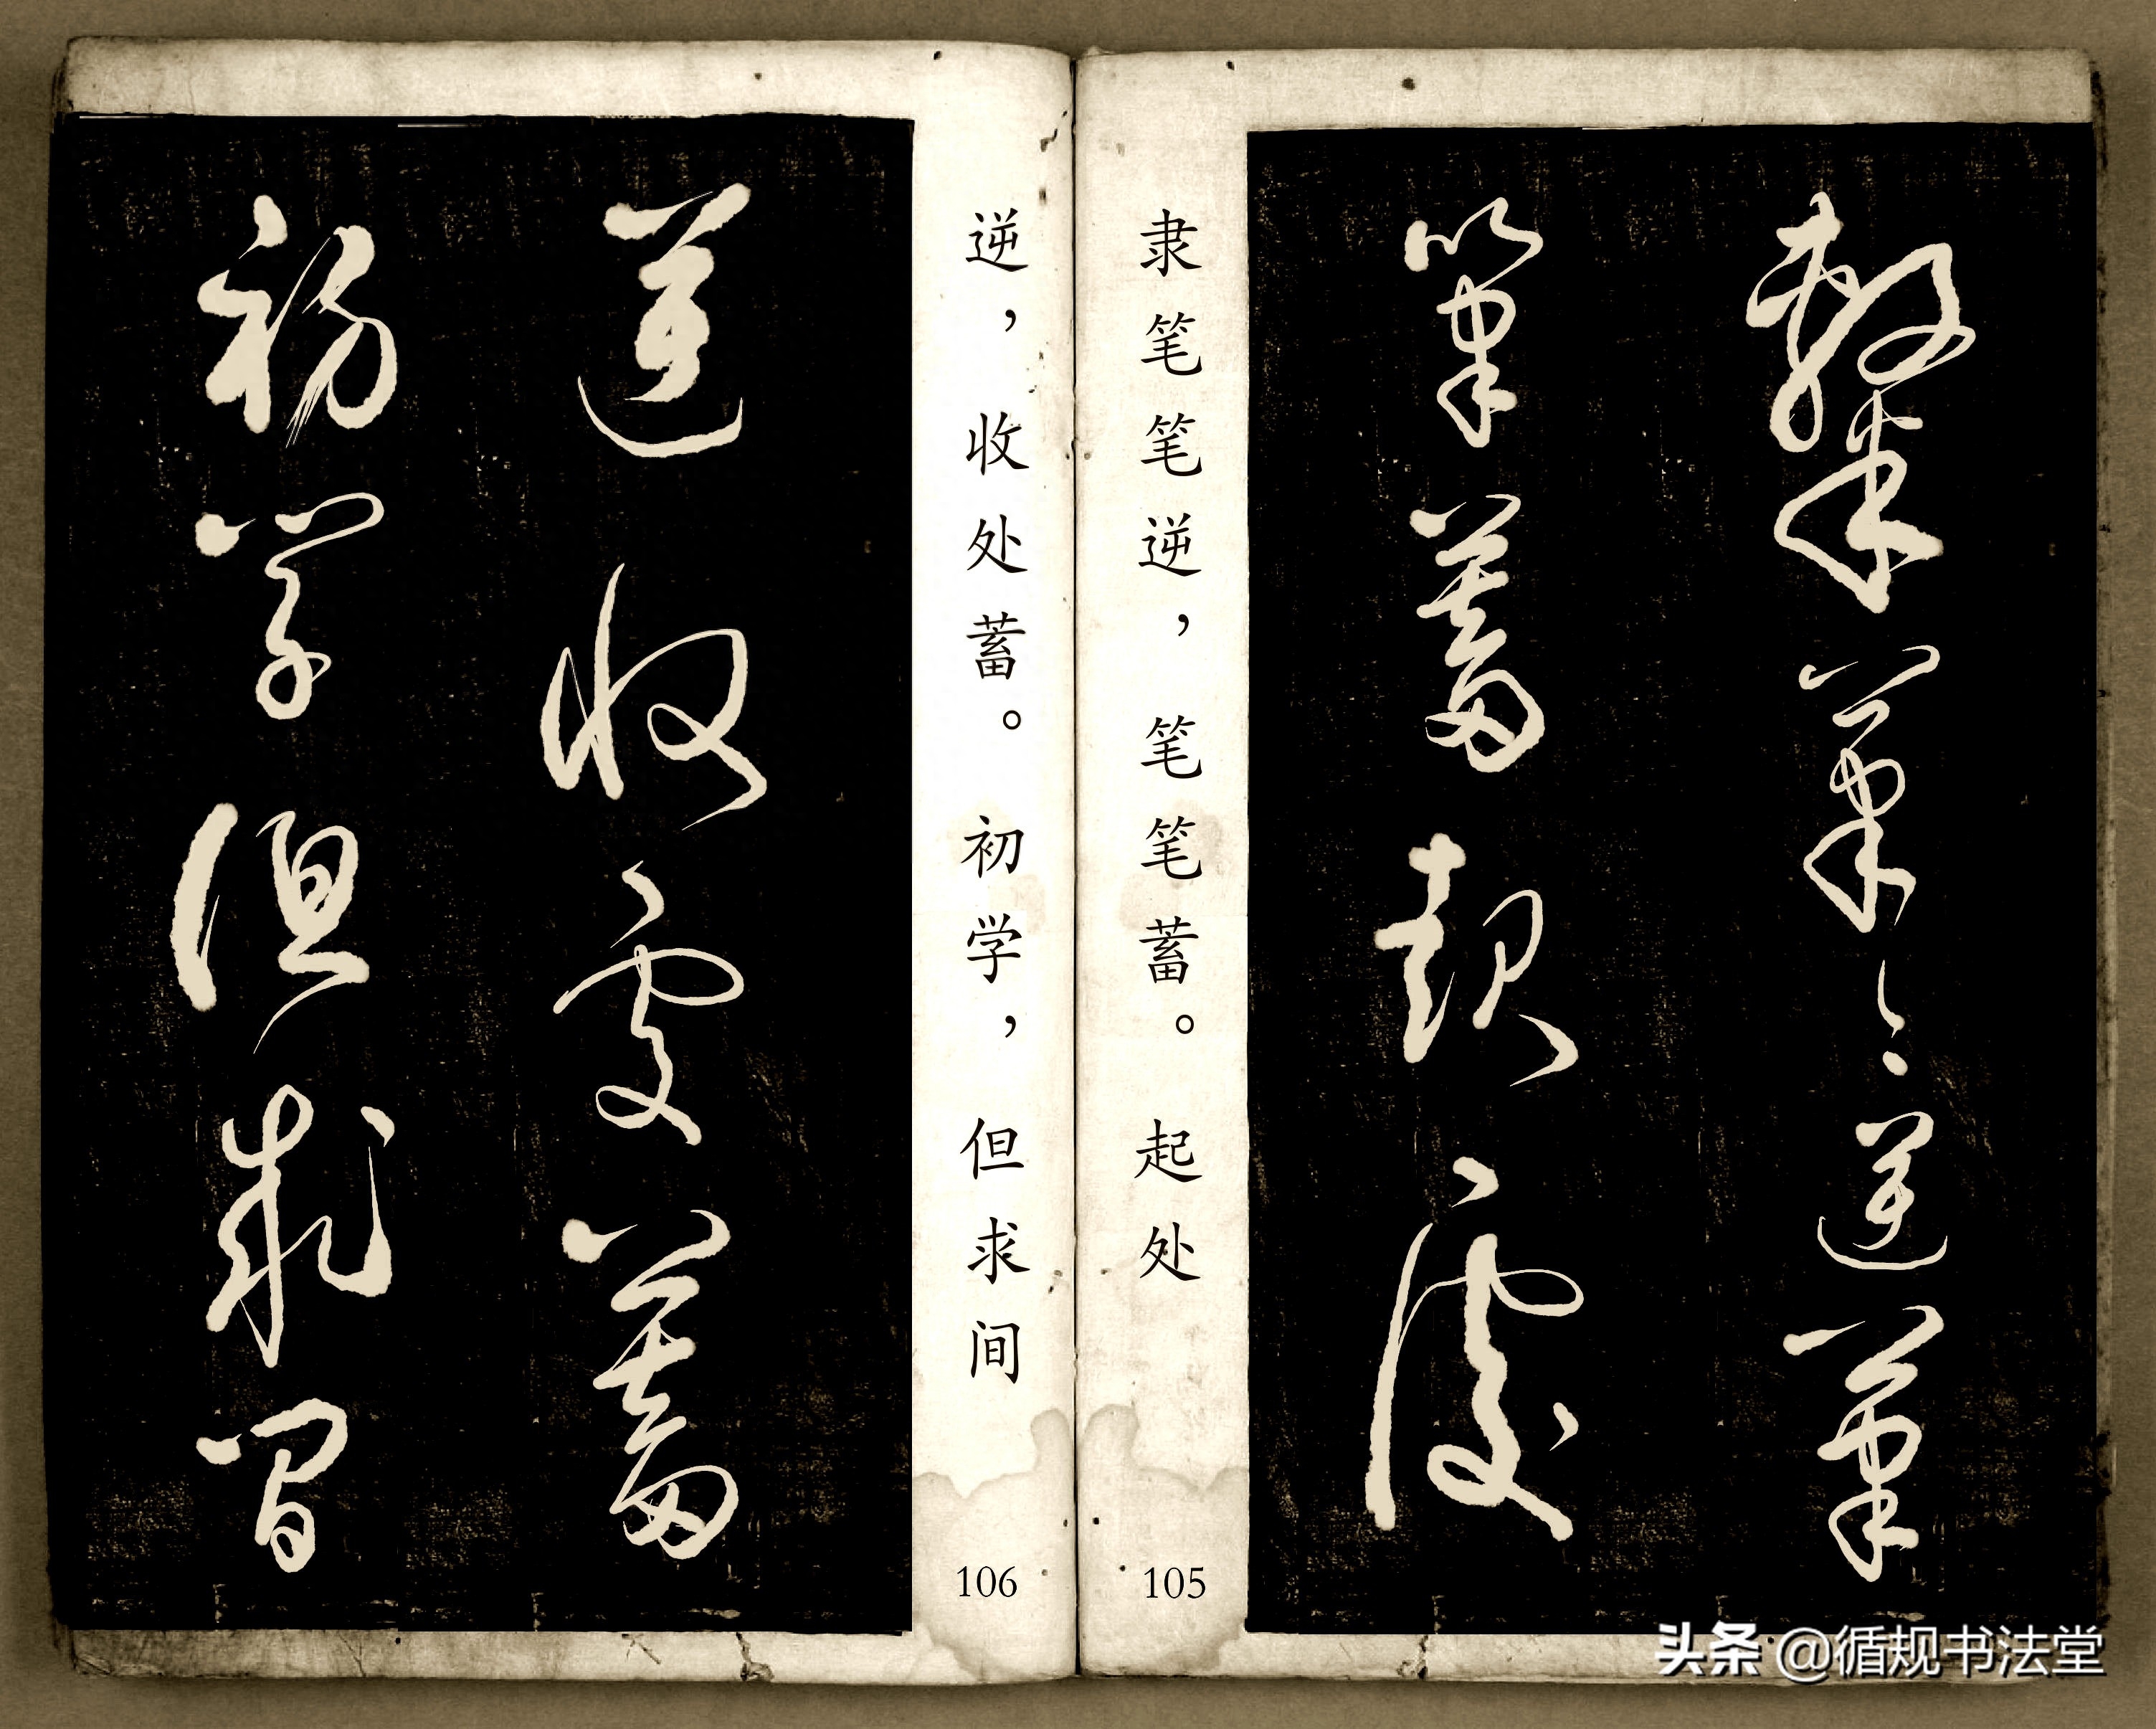 隸筆々逆筆
筆蓄起處
隶笔笔逆，笔笔蓄。起处
105
逆，收处蓄。初学，但求间
106
逆收處蓄
初學但求間
头条 @循规书法堂